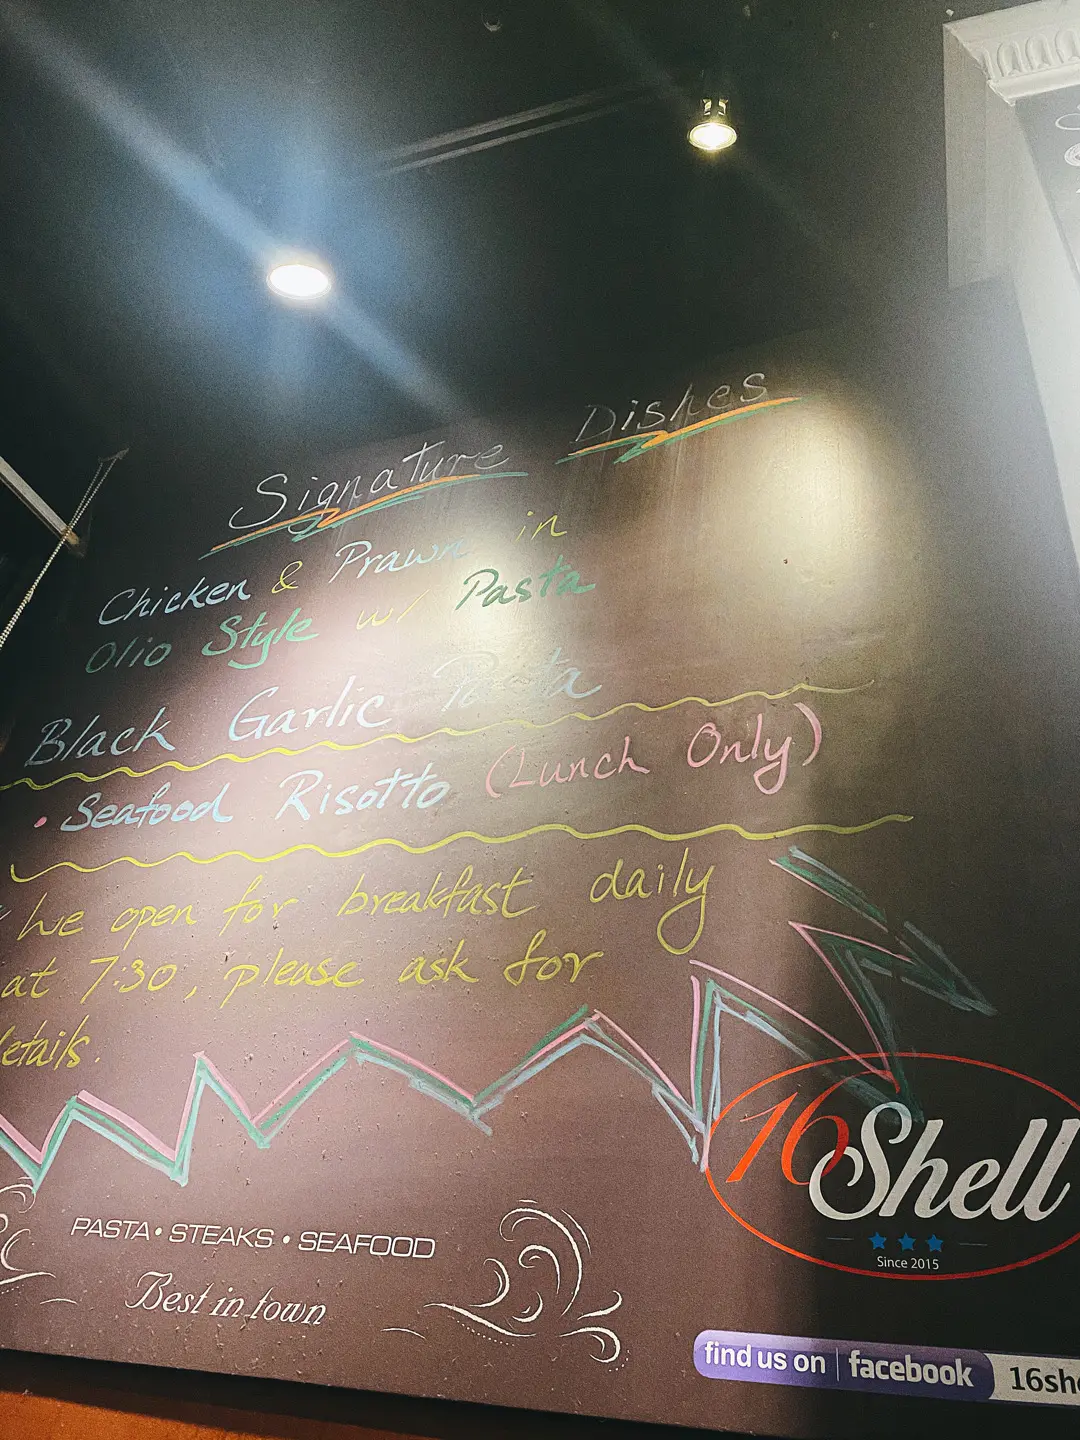 Signature Dishes
Chicken & Prawn in
Olio Style w/ Pasta
Black Garlic Pasta
• Seafood Risotto (Lunch Only)
we open for breakfast daily
at 7:30, please ask for
etails.
16 Shell
Since 2015
PASTA • STEAKS • SEAFOOD
Best in town
find us on | facebook 16she